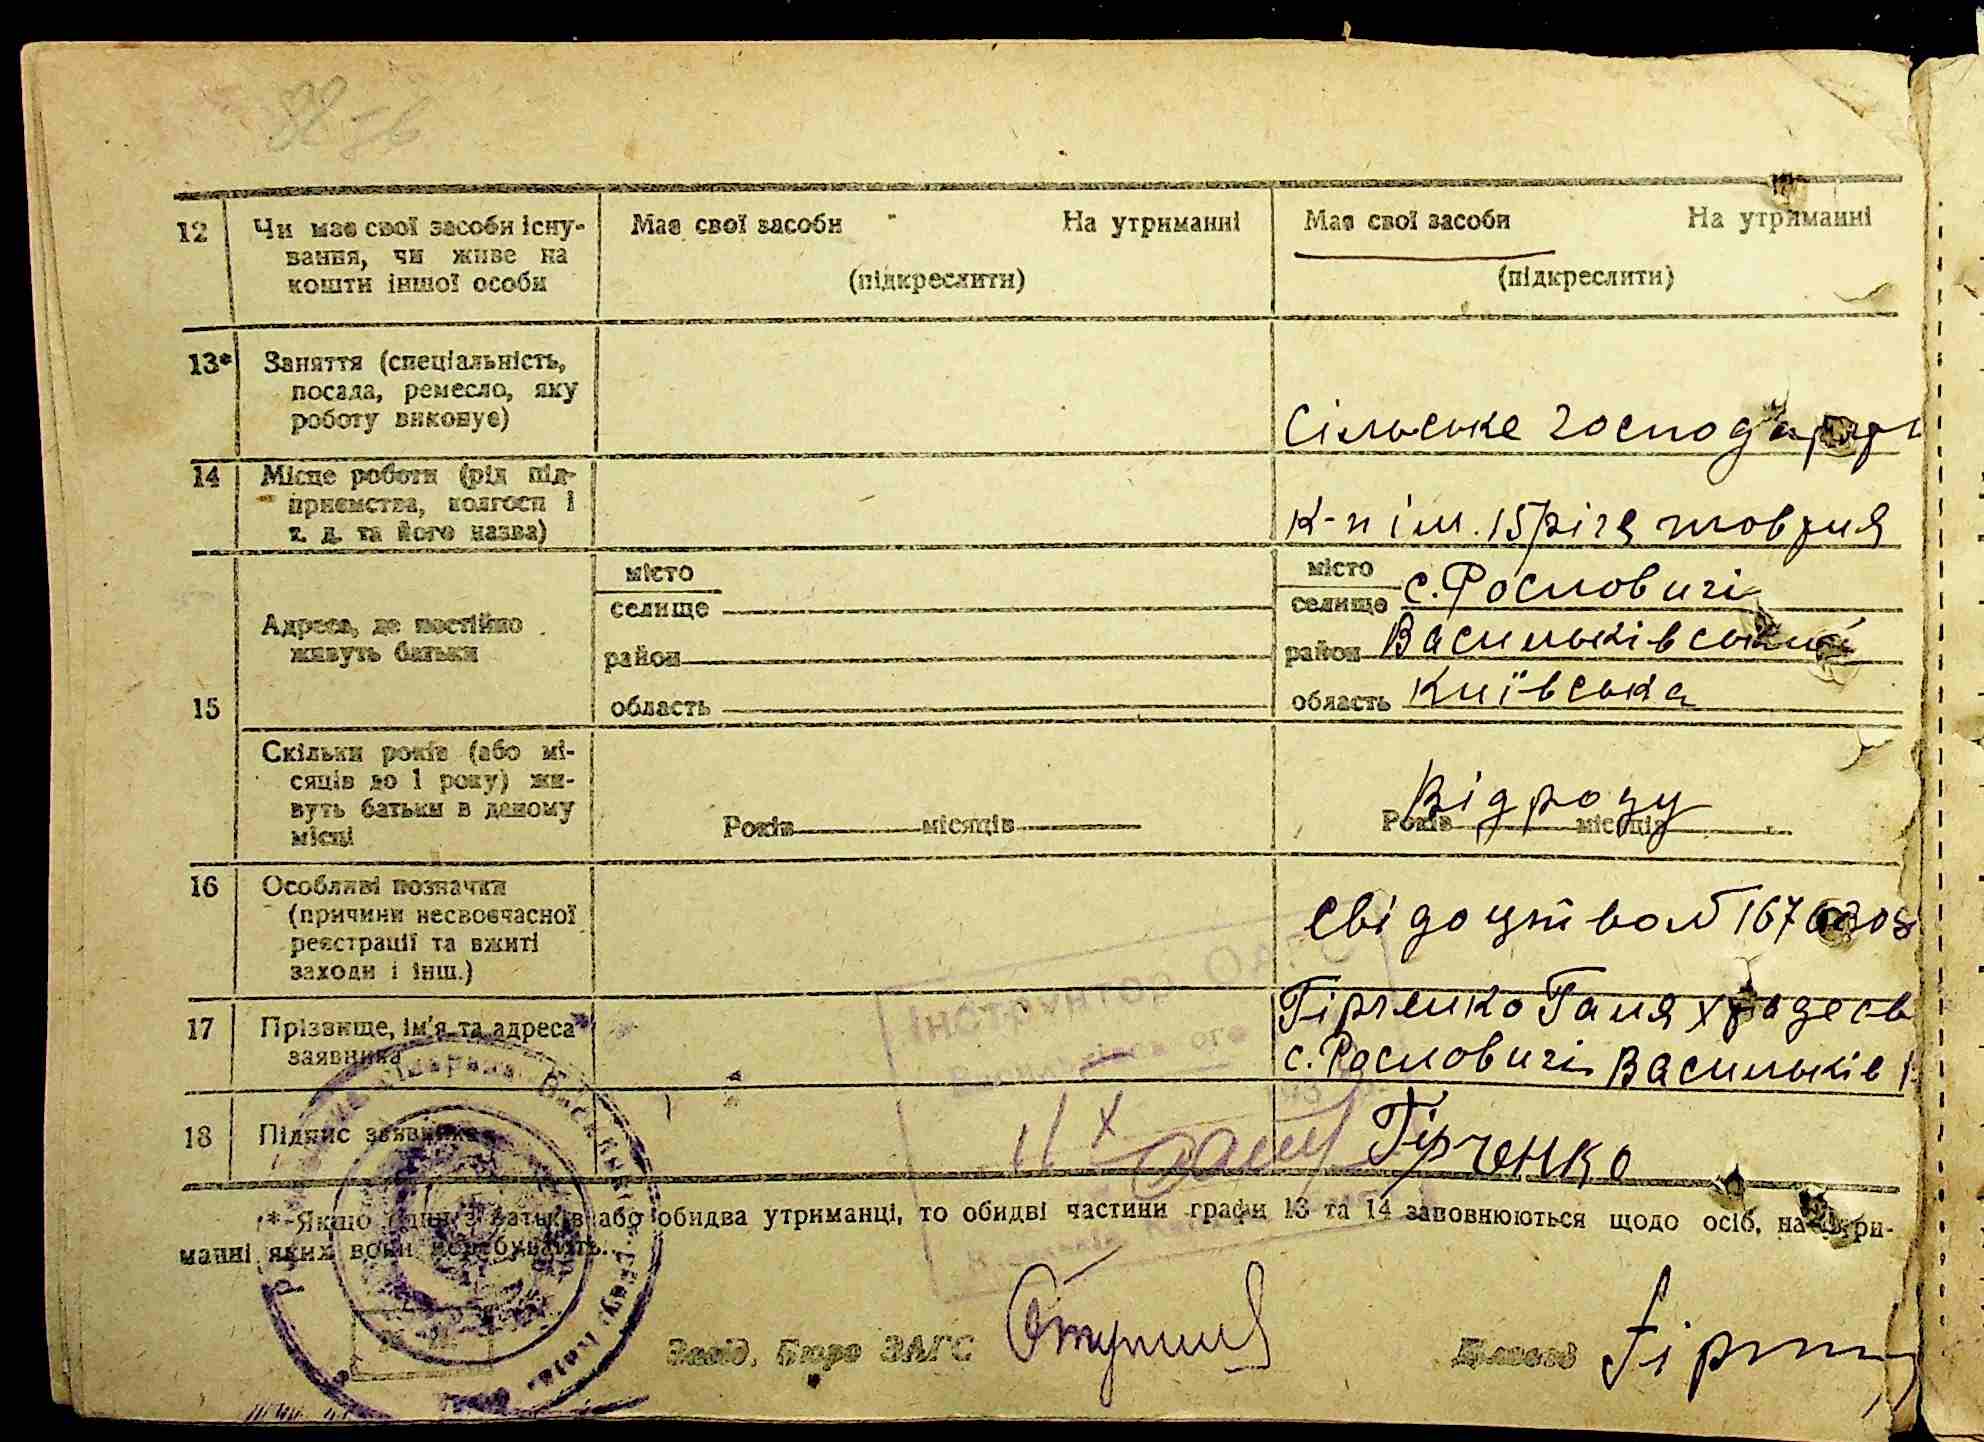 12 Чи має свої засоби існу-
вання, чи живе на
кошти іншої особи
Має свої засоби На утриманні
(підкреслити)
Має свої засоби На утриманні
(підкреслити)
13* Заняття (спеціальність,
посада, ремесло, яку
роботу виконує)
Сільське господар
14 Місце роботи (рід під-
приємства, колгосп і
т. д. та його назва)
К-п ім. 15 річя жовтня
15 Адреса, де постійно
живуть батьки
місто
селище
район
область
місто
селище с. Рословичі
район Васильківський
область Київська
Скільки років (або мі-
сяців до 1 року) жи-
вуть батьки в даному
місці
Років місяців
Від роду
Років місяців
16 Особливі позначки
(причини несвоєчасної
реєстрації та вжиті
заходи і інш.)
Свідоцтво №
17 Прізвище, ім'я та адреса
заявника
Гірченко Ганя
с. Рословичі Васильків
18 Підпис заявника
Гірченко
Інструктор
*-Якщо один з батьків або обидва утриманці, то обидві частини графи 13 та 14 заповнюються щодо осіб, на утри-
манні яких вони перебувають.
Завід. Бюро ЗАГС
Діловод